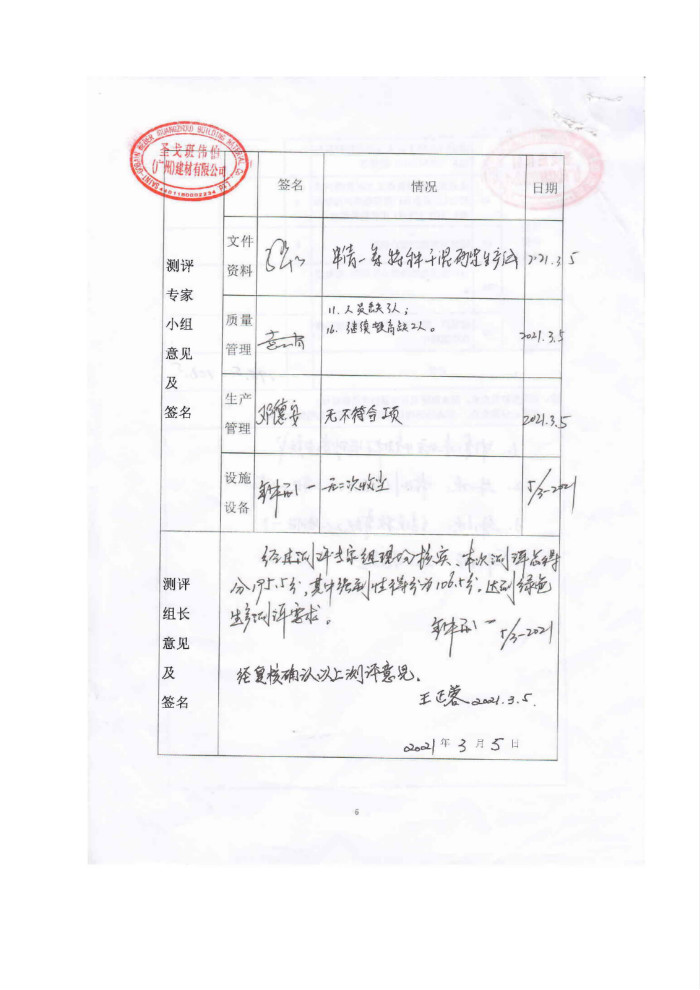 圣戈班伟伯
(广州)建材有限公司
签名 情况 日期
测评
专家
小组
意见
及
签名
文件
资料
申请一条特种干混砂浆生产线 2021.3.5
质量
管理
11. 人员缺3人；
16. 继续教育缺2人。
2021.3.5
生产
管理
邓德安 无不符合项 2021.3.5
设施
设备
无二次收尘 5/3-2021
测评
组长
意见
及
签名
经过测评专家组现场核实、本次测评总得
分195.5分，其中强制性得分为106.5分，达到绿色
生产测评要求。
5/3-2021
经复核确认以上测评意见。
王正蓉 2021.3.5.
2021年3月5日
6